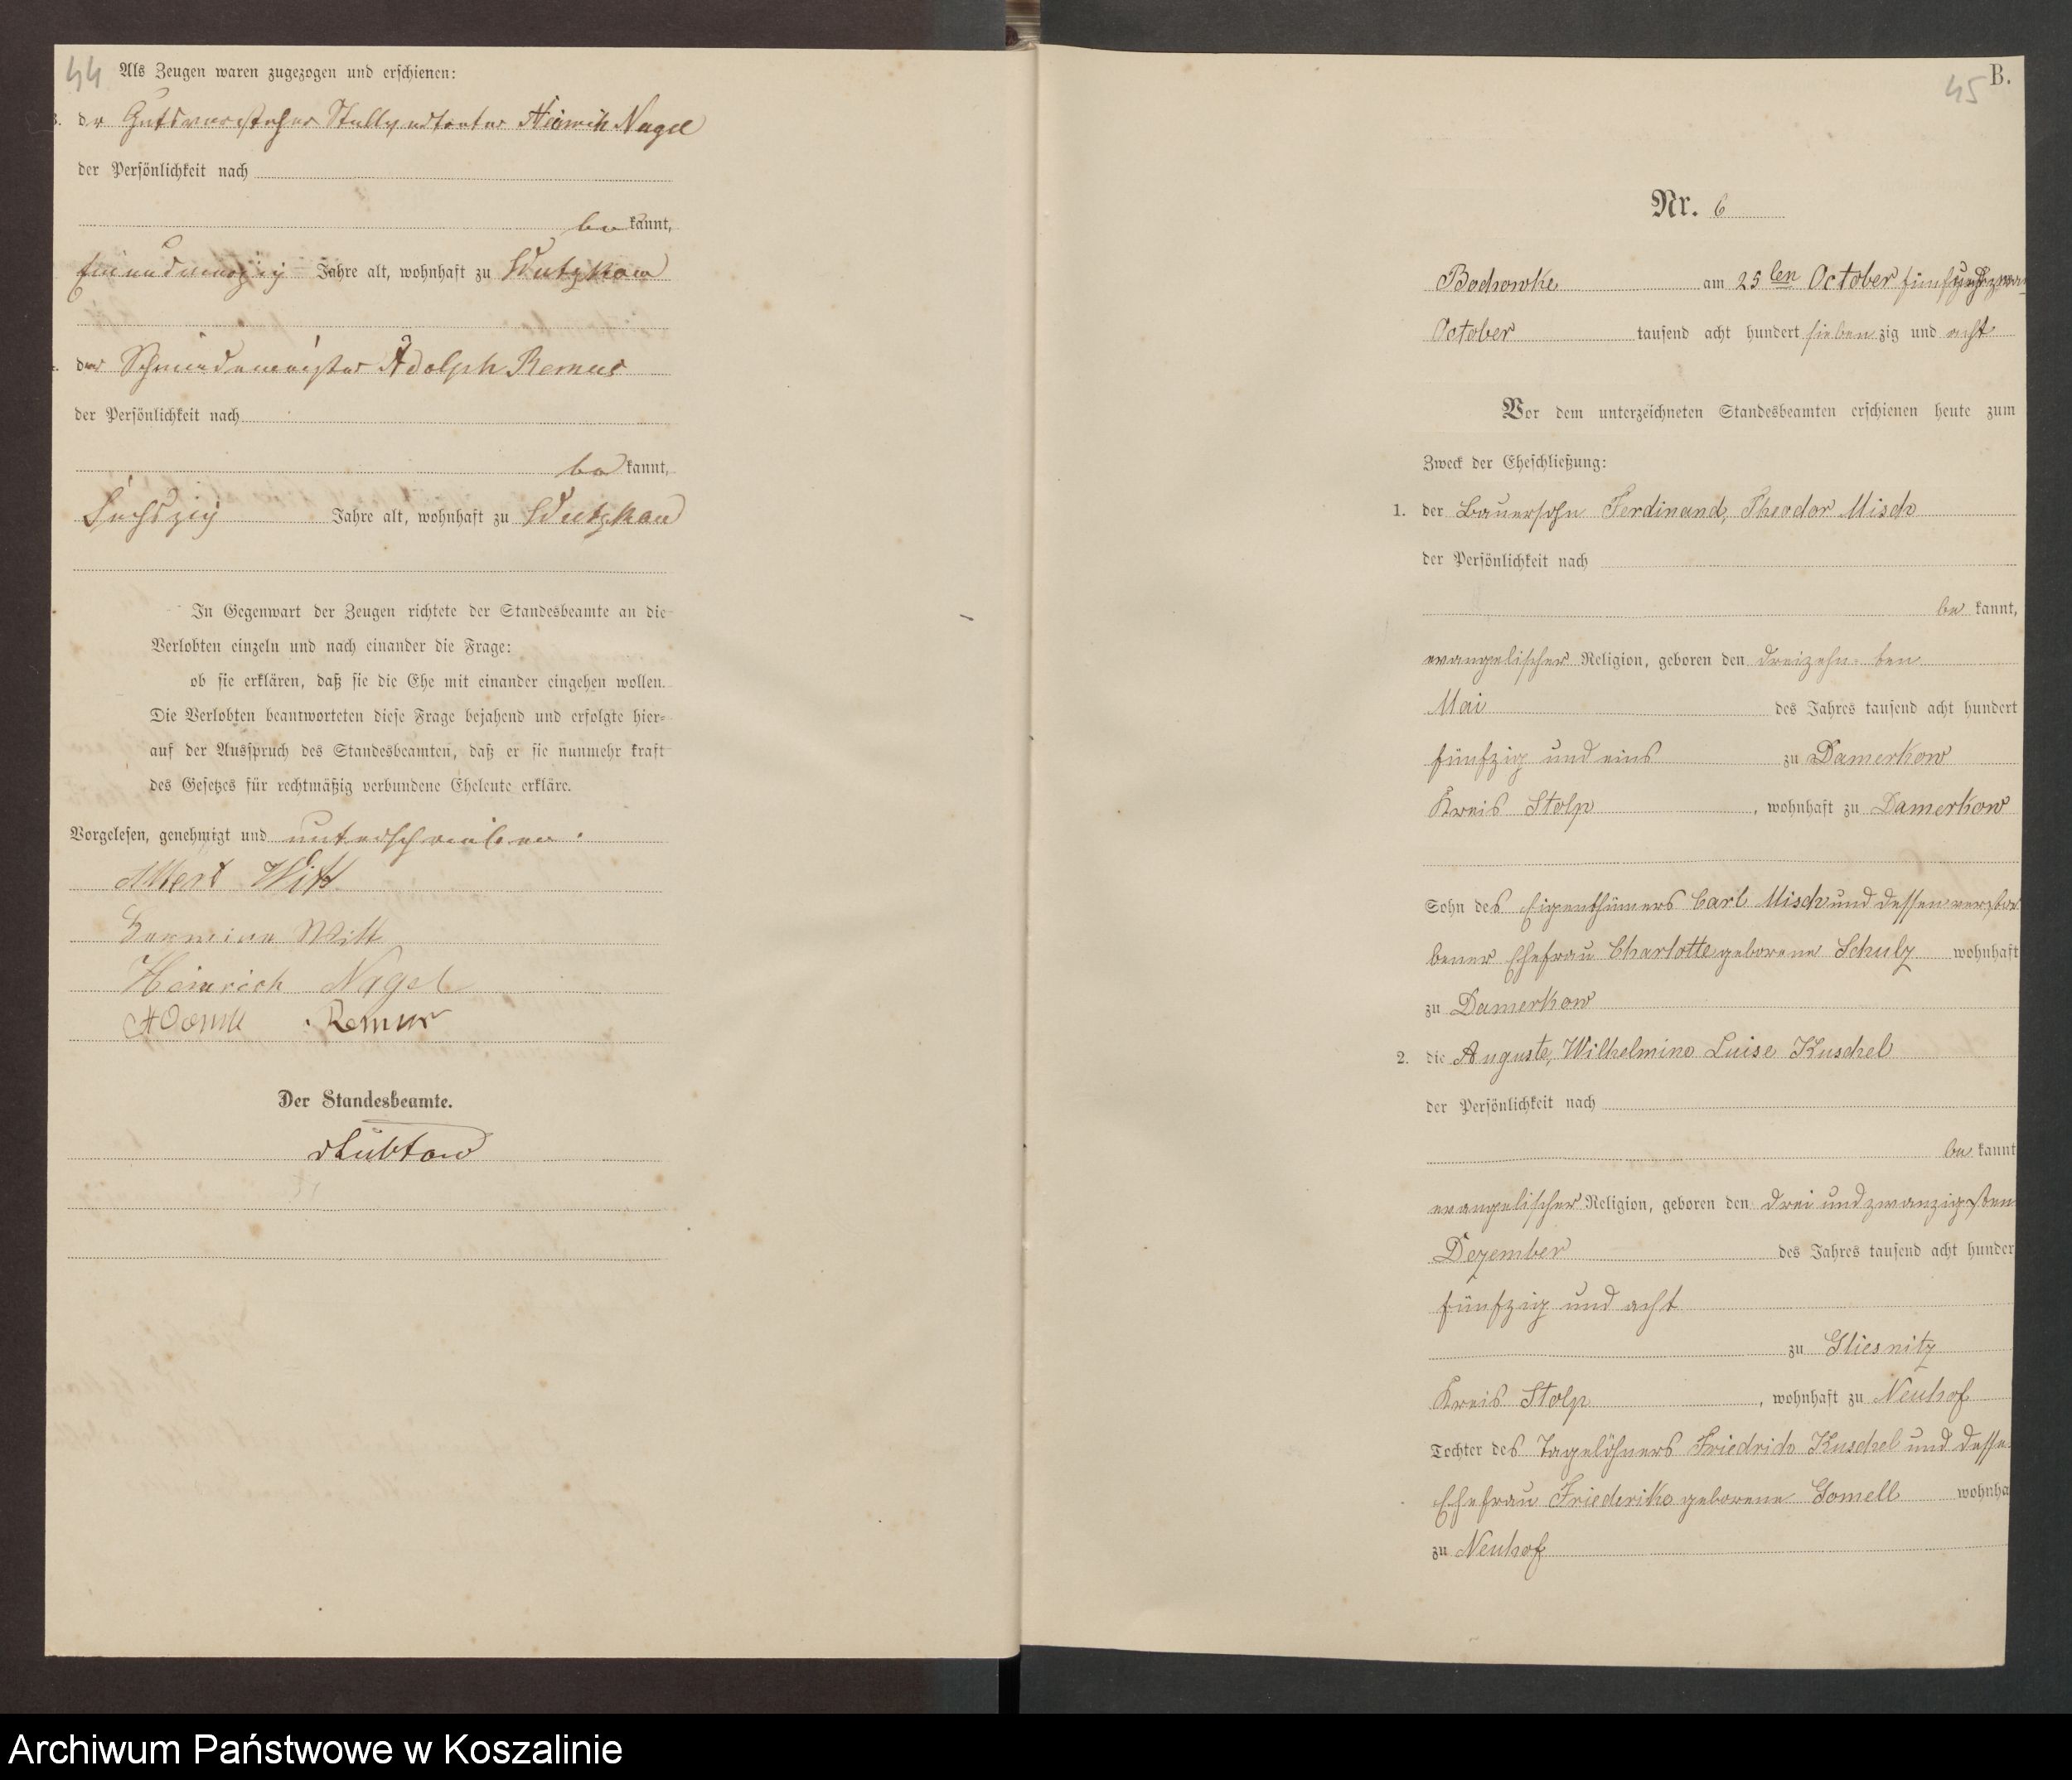 44
Als Zeugen waren zugezogen und erschienen:
3. der Gutsvorsteher Stellvertreter Heinrich Nagel
der Persönlichkeit nach
be kannt,
Jahre alt, wohnhaft zu Wutzkow
der Schmiedemeister Adolph Remus
der Persönlichkeit nach
be kannt,
Sechszig Jahre alt, wohnhaft zu Wutzkow
In Gegenwart der Zeugen richtete der Standesbeamte an die
Verlobten einzeln und nach einander die Frage:
ob sie erklären, daß sie die Ehe mit einander eingehen wollen.
Die Verlobten beantworteten diese Frage bejahend und erfolgte hier-
auf der Ausspruch des Standesbeamten, daß er sie nunmehr kraft
des Gesetzes für rechtmäßig verbundene Eheleute erkläre.
Vorgelesen, genehmigt und unterschrieben.
Albert Witt
Hermine Witt
Heinrich Nagel
Remus
Der Standesbeamte.
vLübtow
45
B.
Nr. 6
Bochowke am 25 ten October fünfundzwan
October tausend acht hundert siebenzig und acht
Vor dem unterzeichneten Standesbeamten erschienen heute zum
Zweck der Eheschließung:
1. der Bauersohn Ferdinand, Theodor Misch
der Persönlichkeit nach
be kannt,
evangelischer Religion, geboren den dreizehn ten
Mai des Jahres tausend acht hundert
fünfzig und eins zu Damerkow
Kreis Stolp, wohnhaft zu Damerkow
Sohn des Eigenthümers Carl Misch und dessen verstor
bener Ehefrau Charlotte geborene Schulz wohnhaft
zu Damerkow
2. die Auguste, Wilhelmine Luise Kuschel
der Persönlichkeit nach
be kannt
evangelischer Religion, geboren den drei und zwanzigsten
Dezember des Jahres tausend acht hunder
fünfzig und acht
zu Gliesnitz
Kreis Stolp, wohnhaft zu Neuhof
Tochter des Tagelöhners Friedrich Kuschel und desse
Ehefrau Friederike geborene Gomell wohnha
zu Neuhof
Archiwum Państwowe w Koszalinie